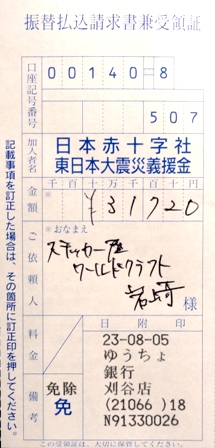 振替払込請求書兼受領証
口座記号番号
00140=8
507
加入者名
日本赤十字社
東日本大震災義援金
金額
千百十万千百十円
※
¥31720
ご依頼人
※おなまえ
ステッカー屋
ワールドクラフト
岩崎
様
料金
備考
日附印
免除
免
23-08-05
ゆうちょ
銀行
刈谷店
(21066 )18
N91330026
記載事項を訂正した場合は、その箇所に訂正印を押してください。
この受領証は、大切に保管してください。